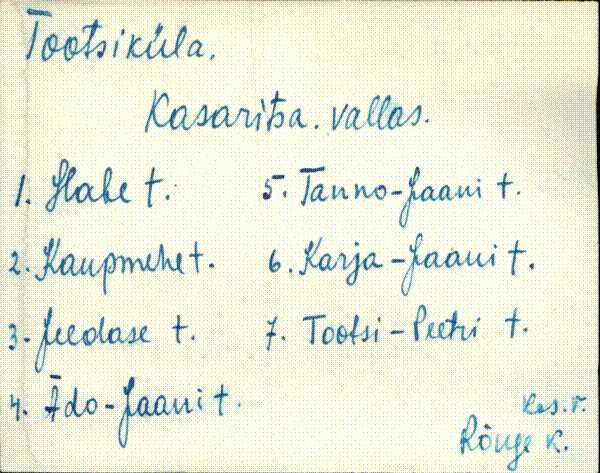 Tootsiküla.
Kasaritsa. vallas.
1. Habe t.
2. Kaupmehe t.
3. Jeedase t.
4. Ado-Jaani t.
5. Tanno-Jaani t.
6. Karja-Jaani t.
7. Tootsi-Peetri t.
Kas. v.
Rõuge k.